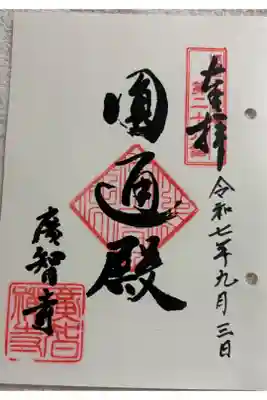 奉拝
令和七年九月三日
圓通殿
廣智寺